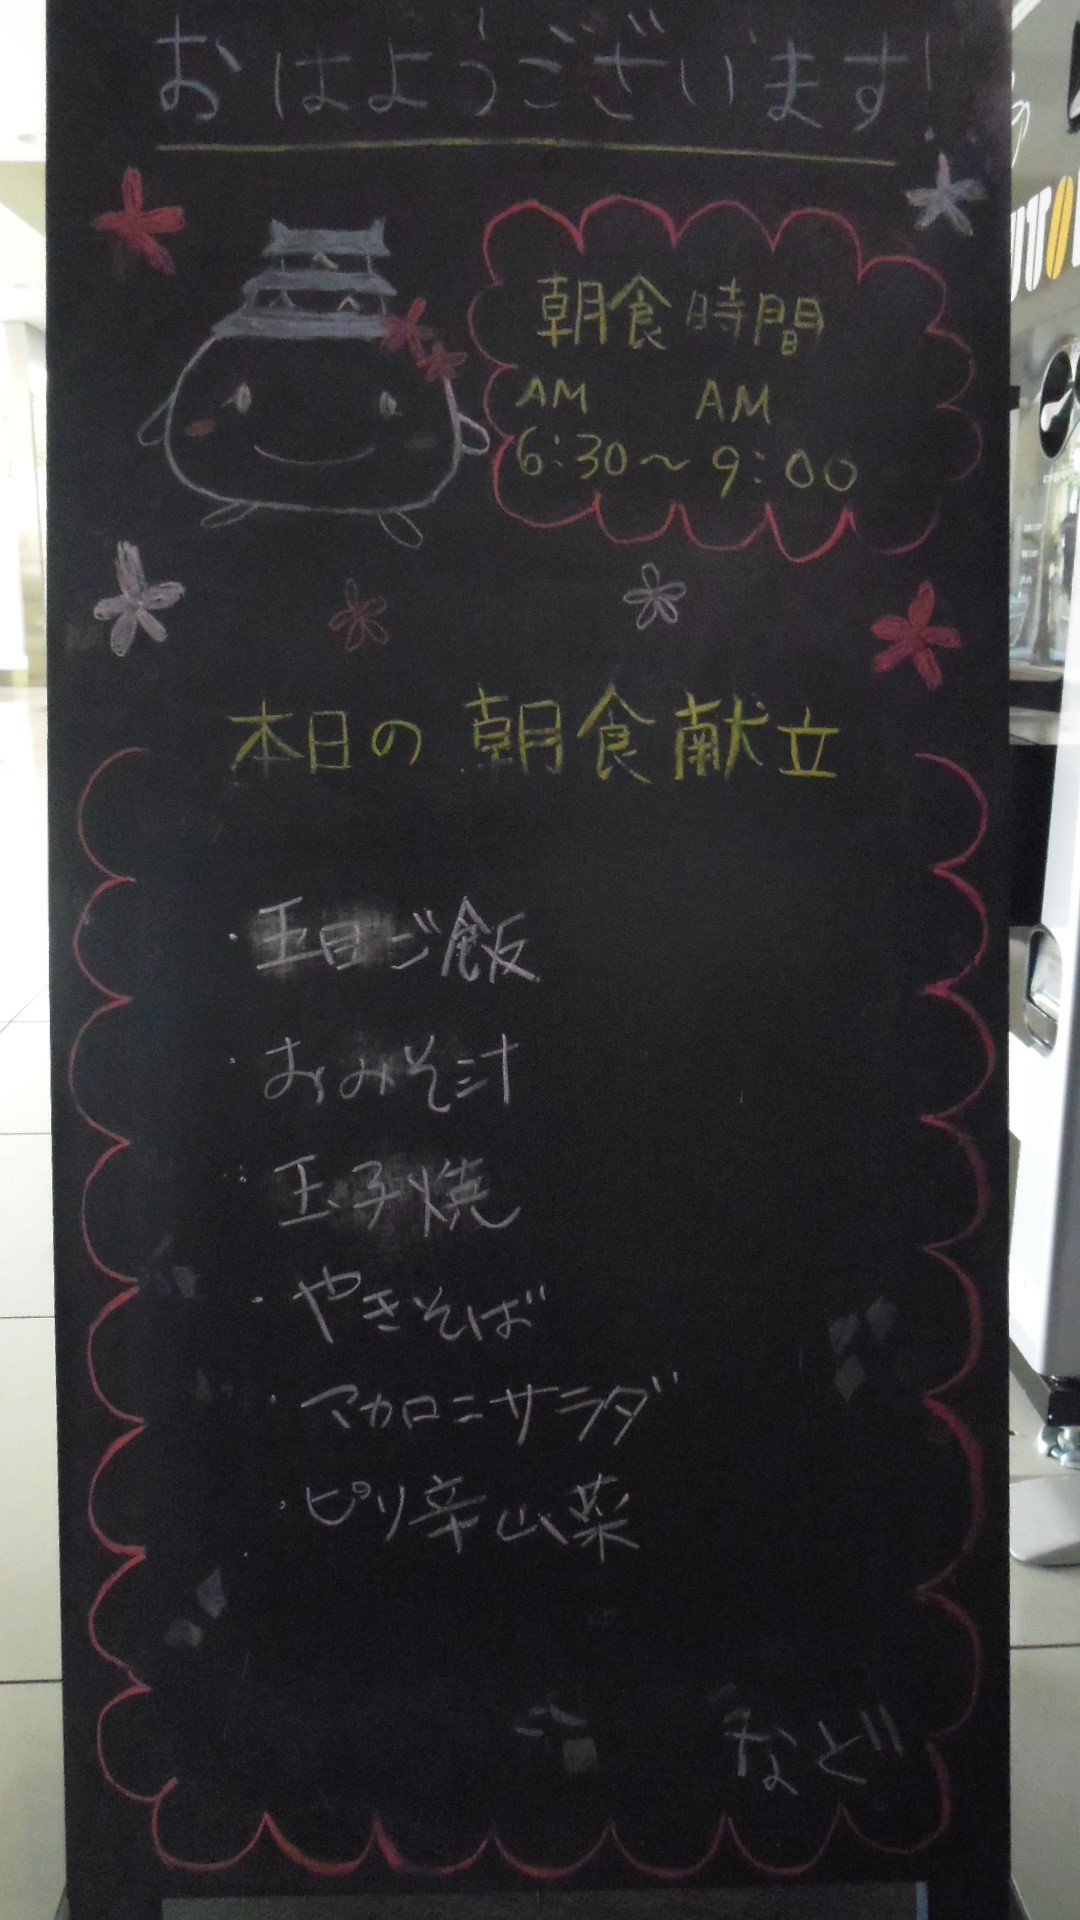 おはようございます!
朝食時間
AM AM
6:30〜9:00
本日の朝食献立
・五目ご飯
・おみそ汁
・玉子焼
・やきそば
・マカロニサラダ
・ピリ辛山菜
など